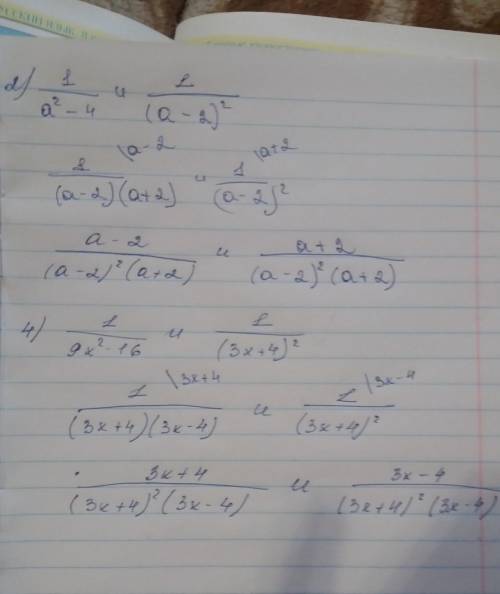 2) 1/(a² - 4) и 1/(a - 2)²
1/((a-2)(a+2)) \a-2 и 1/(a-2)² \a+2
(a - 2)/((a-2)²(a+2)) и (a+2)/((a-2)²(a+2))
4) 1/(9x²-16) и 1/(3x+4)²
1/((3x+4)(3x-4)) \3x+4 и 1/(3x+4)² \3x-4
(3x+4)/((3x+4)²(3x-4)) и (3x-4)/((3x+4)²(3x-4))